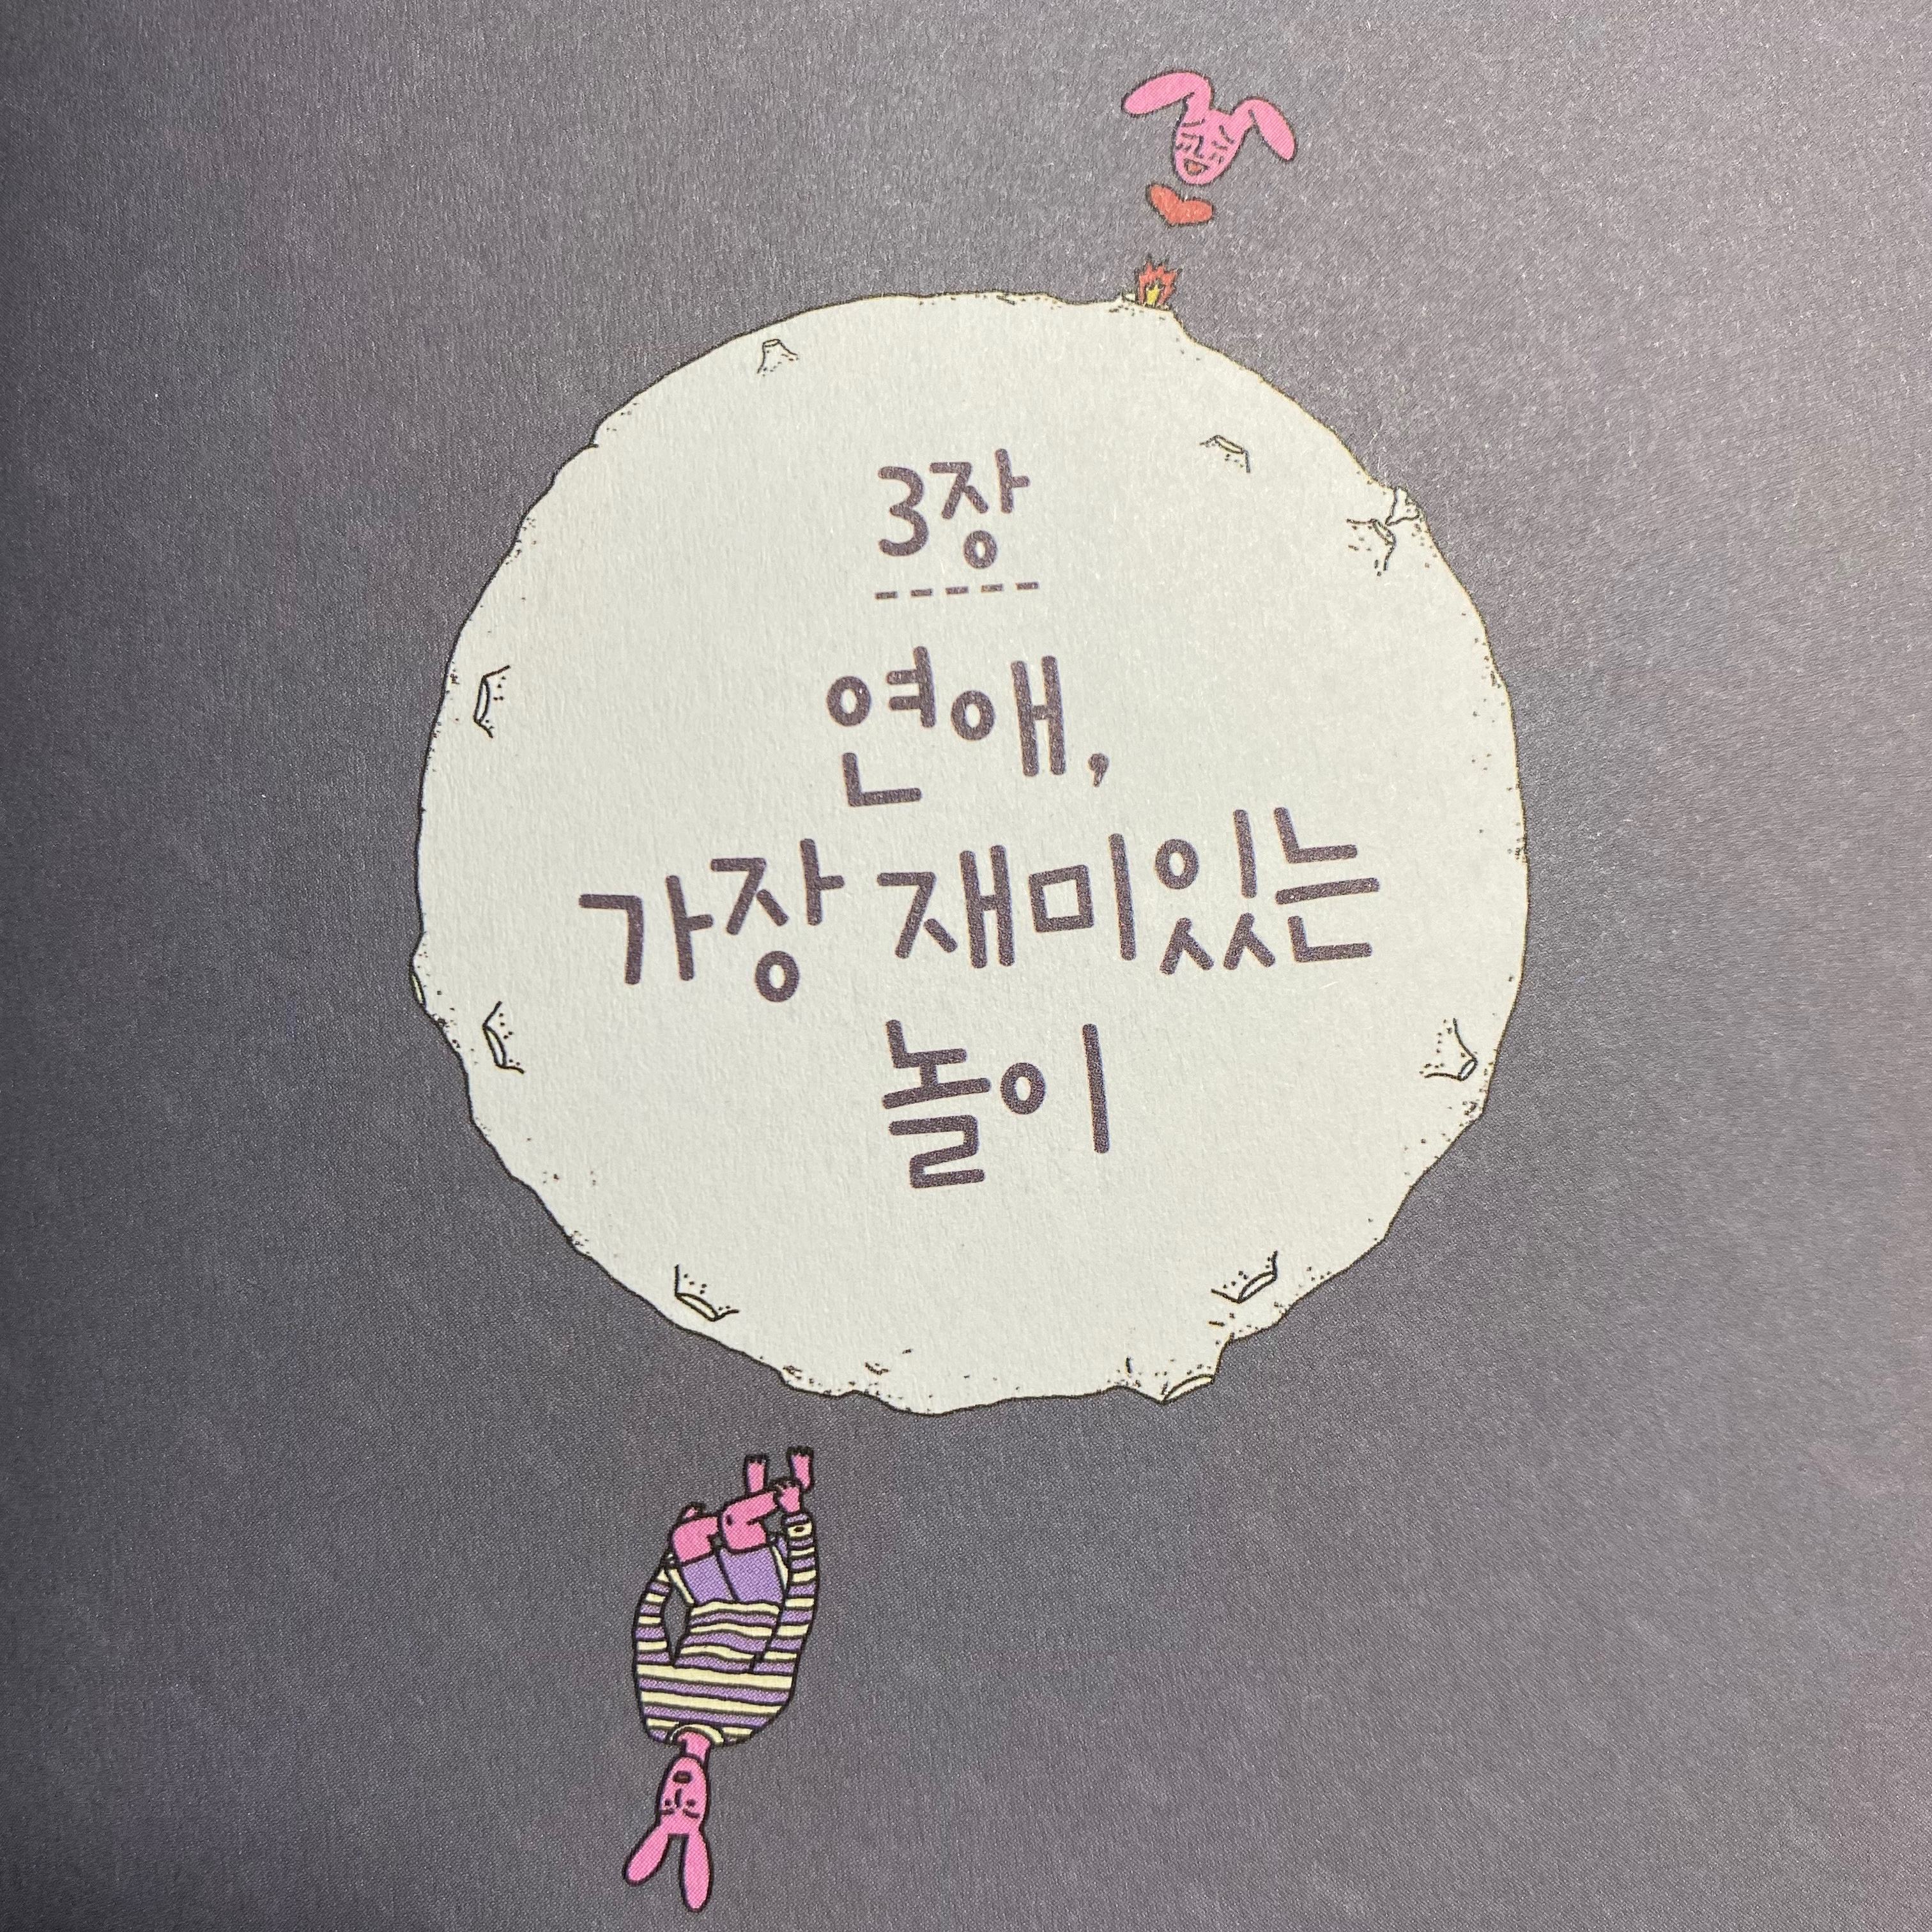 3장
연애,
가장 재미있는
놀이